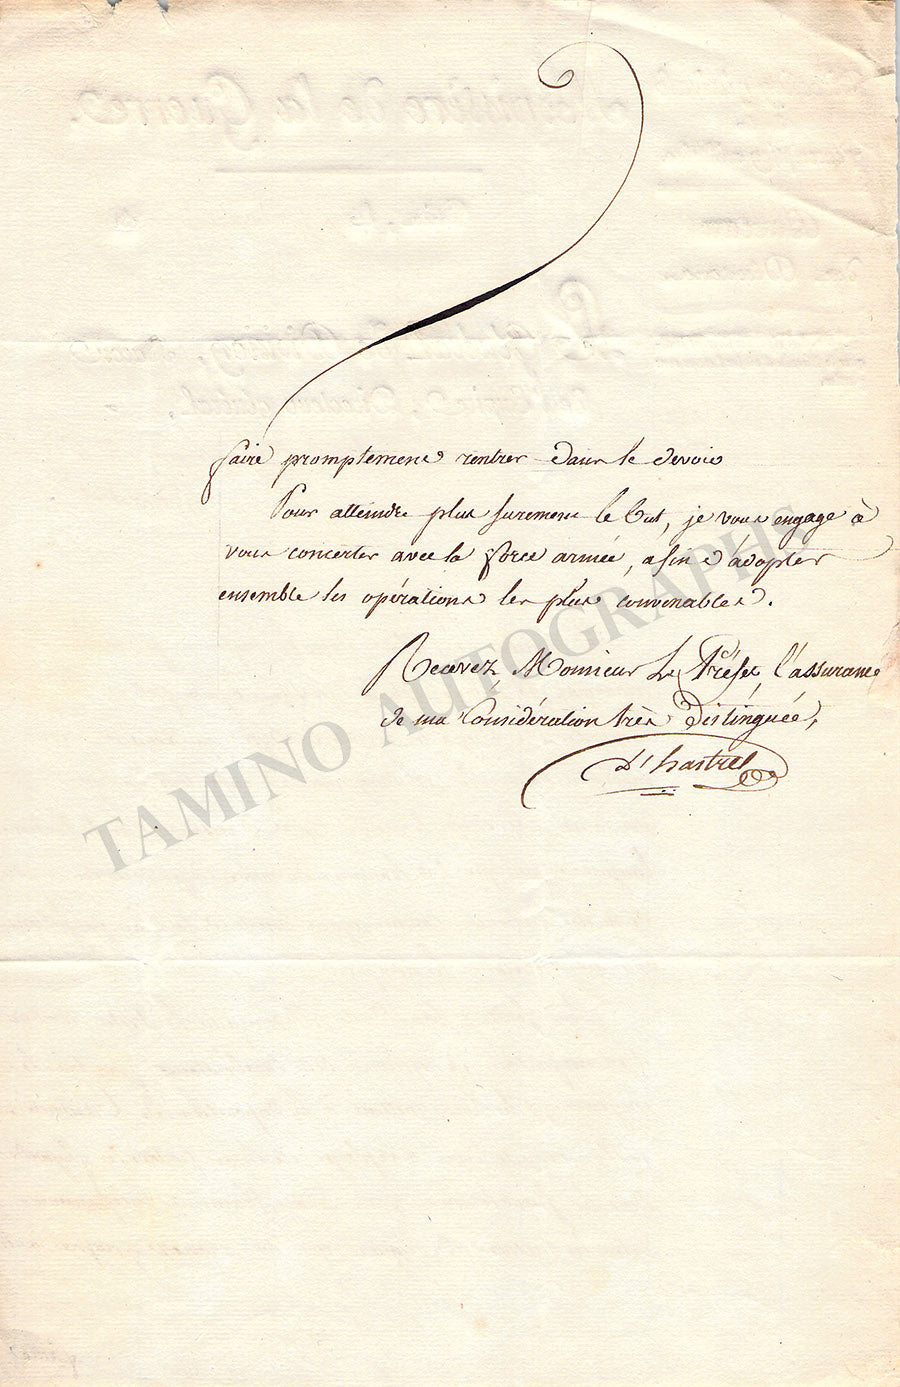 faire promptement rentrer dans le devoir
Pour atteindre plus surement le but, je vous engage à
vous concerter avec la force armée, afin d'adopter
ensemble les opérations les plus convenables.
Recevez, Monsieur Le Préfet, l'assurance
de ma Considération très Distinguée,
D'hastrel
TAMINO AUTOGRAPHS